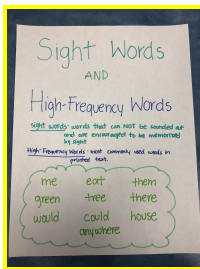 Sight Words
AND
High-Frequency Words
Sight words- words that can NOT be sounded out
and are encouraged to be memorized
by sight
High-Frequency Words- most commonly used words in
printed text.
me eat them
green tree there
would could house
anywhere